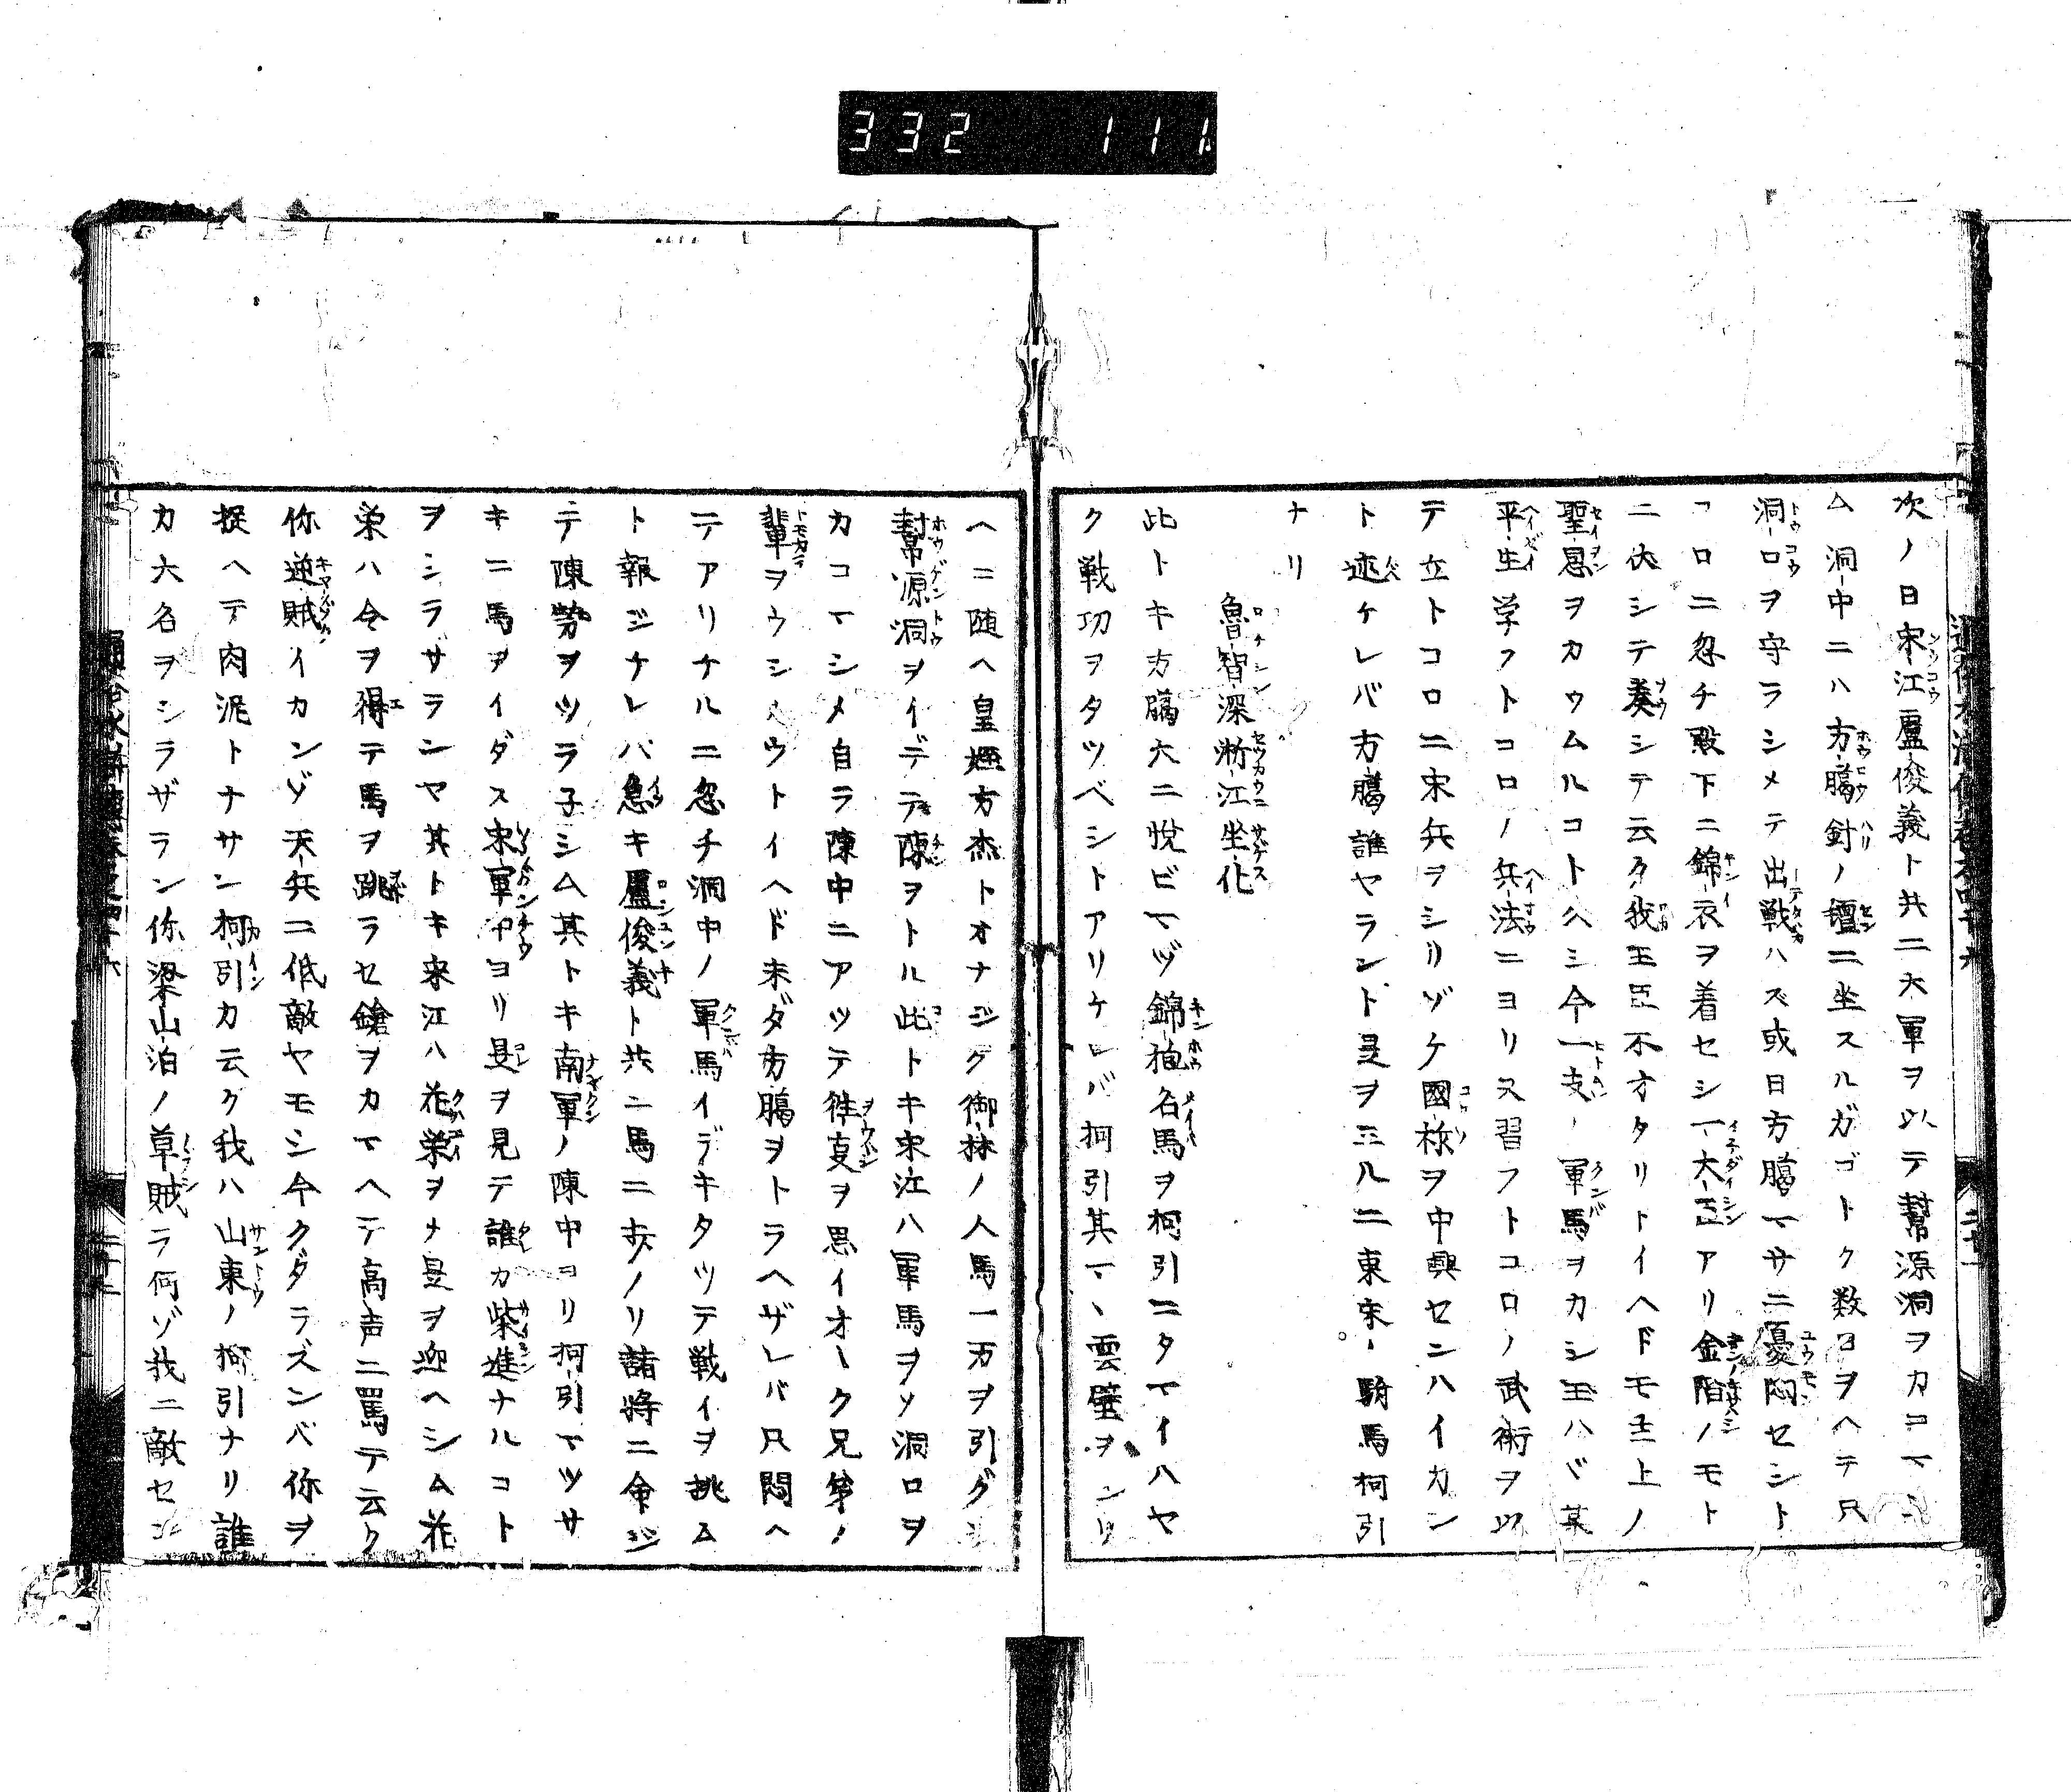 332 111
次ノ日宋江盧俊義ト共ニ大軍ヲ以テ幇源洞ヲカコマシ
ム洞中ニハ方臈針ノ氊ニ坐スルガゴトク数日ヲヘテ只
洞口ヲ守ラシメテ出戦ハズ或日方臈マサニ憂悶セシト
コロニ忽チ殿下ニ錦衣ヲ着セシ一大臣アリ金階ノモト
ニ伏シテ奏シテ云ク我王臣不才タリトイヘドモ主上ノ
聖恩ヲカウムルコトヘミ今一支ノ軍馬ヲカシ玉ハバ某
平生学フトコロノ兵法ニヨリ又習フトコロノ武術ヲ以
テ立トコロニ宋兵ヲシリゾケ國祚ヲ中興センハイカン
ト述ケレバ方臈誰ヤラント是ヲミルニ東宋ノ駙馬柯引
ナリ
魯智深浙江坐化
此トキ方臈大ニ悦ビマヅ錦袍名馬ヲ柯引ニタマイハヤ
ク戦功ヲタツベシトアリケレバ柯引其マヽ雲壁ヲシリ
ヘニ随ヘ皇姪方杰トオナジク御林ノ人馬一万ヲ引グシ
幇源洞ヲイデテ陳ヲトル此トキ宋江ハ軍馬ヲソ洞口ヲ
カコマシメ自ラ陳中ニアツテ徃叓ヲ思イオヽク兄弟ノ
輩ヲウシノウトイヘド未ダ方臈ヲトラヘザレバ只悶ヘ
テアリナルニ忽チ洞中ノ軍馬イデキタツテ戦イヲ挑ム
ト報ジナレバ急キ盧俊義ト共ニ馬ニ打ノリ諸将ニ命ジ
テ陳勢ヲツラ子シム其トキ南軍ノ陳中ヨリ柯引マツサ
キニ馬ヲイダス宋軍中ヨリ是ヲ見テ誰カ柴進ナルコト
ヲシラザランヤ其トキ宋江ハ花栄ヲメ是ヲ迎ヘシム花
栄ハ令ヲ得テ馬ヲ跳ラセ鎗ヲカマヘテ高声ニ罵テ云ク
你逆賊イカンゾ天兵ニ低敵ヤモシ今クダラズンバ你ヲ
捉ヘテ肉泥トナサン柯引カ云ク我ハ山東ノ柯引ナリ誰
カ大名ヲシラザラン你梁山泊ノ草賊ラ何ゾ我ニ敵セン